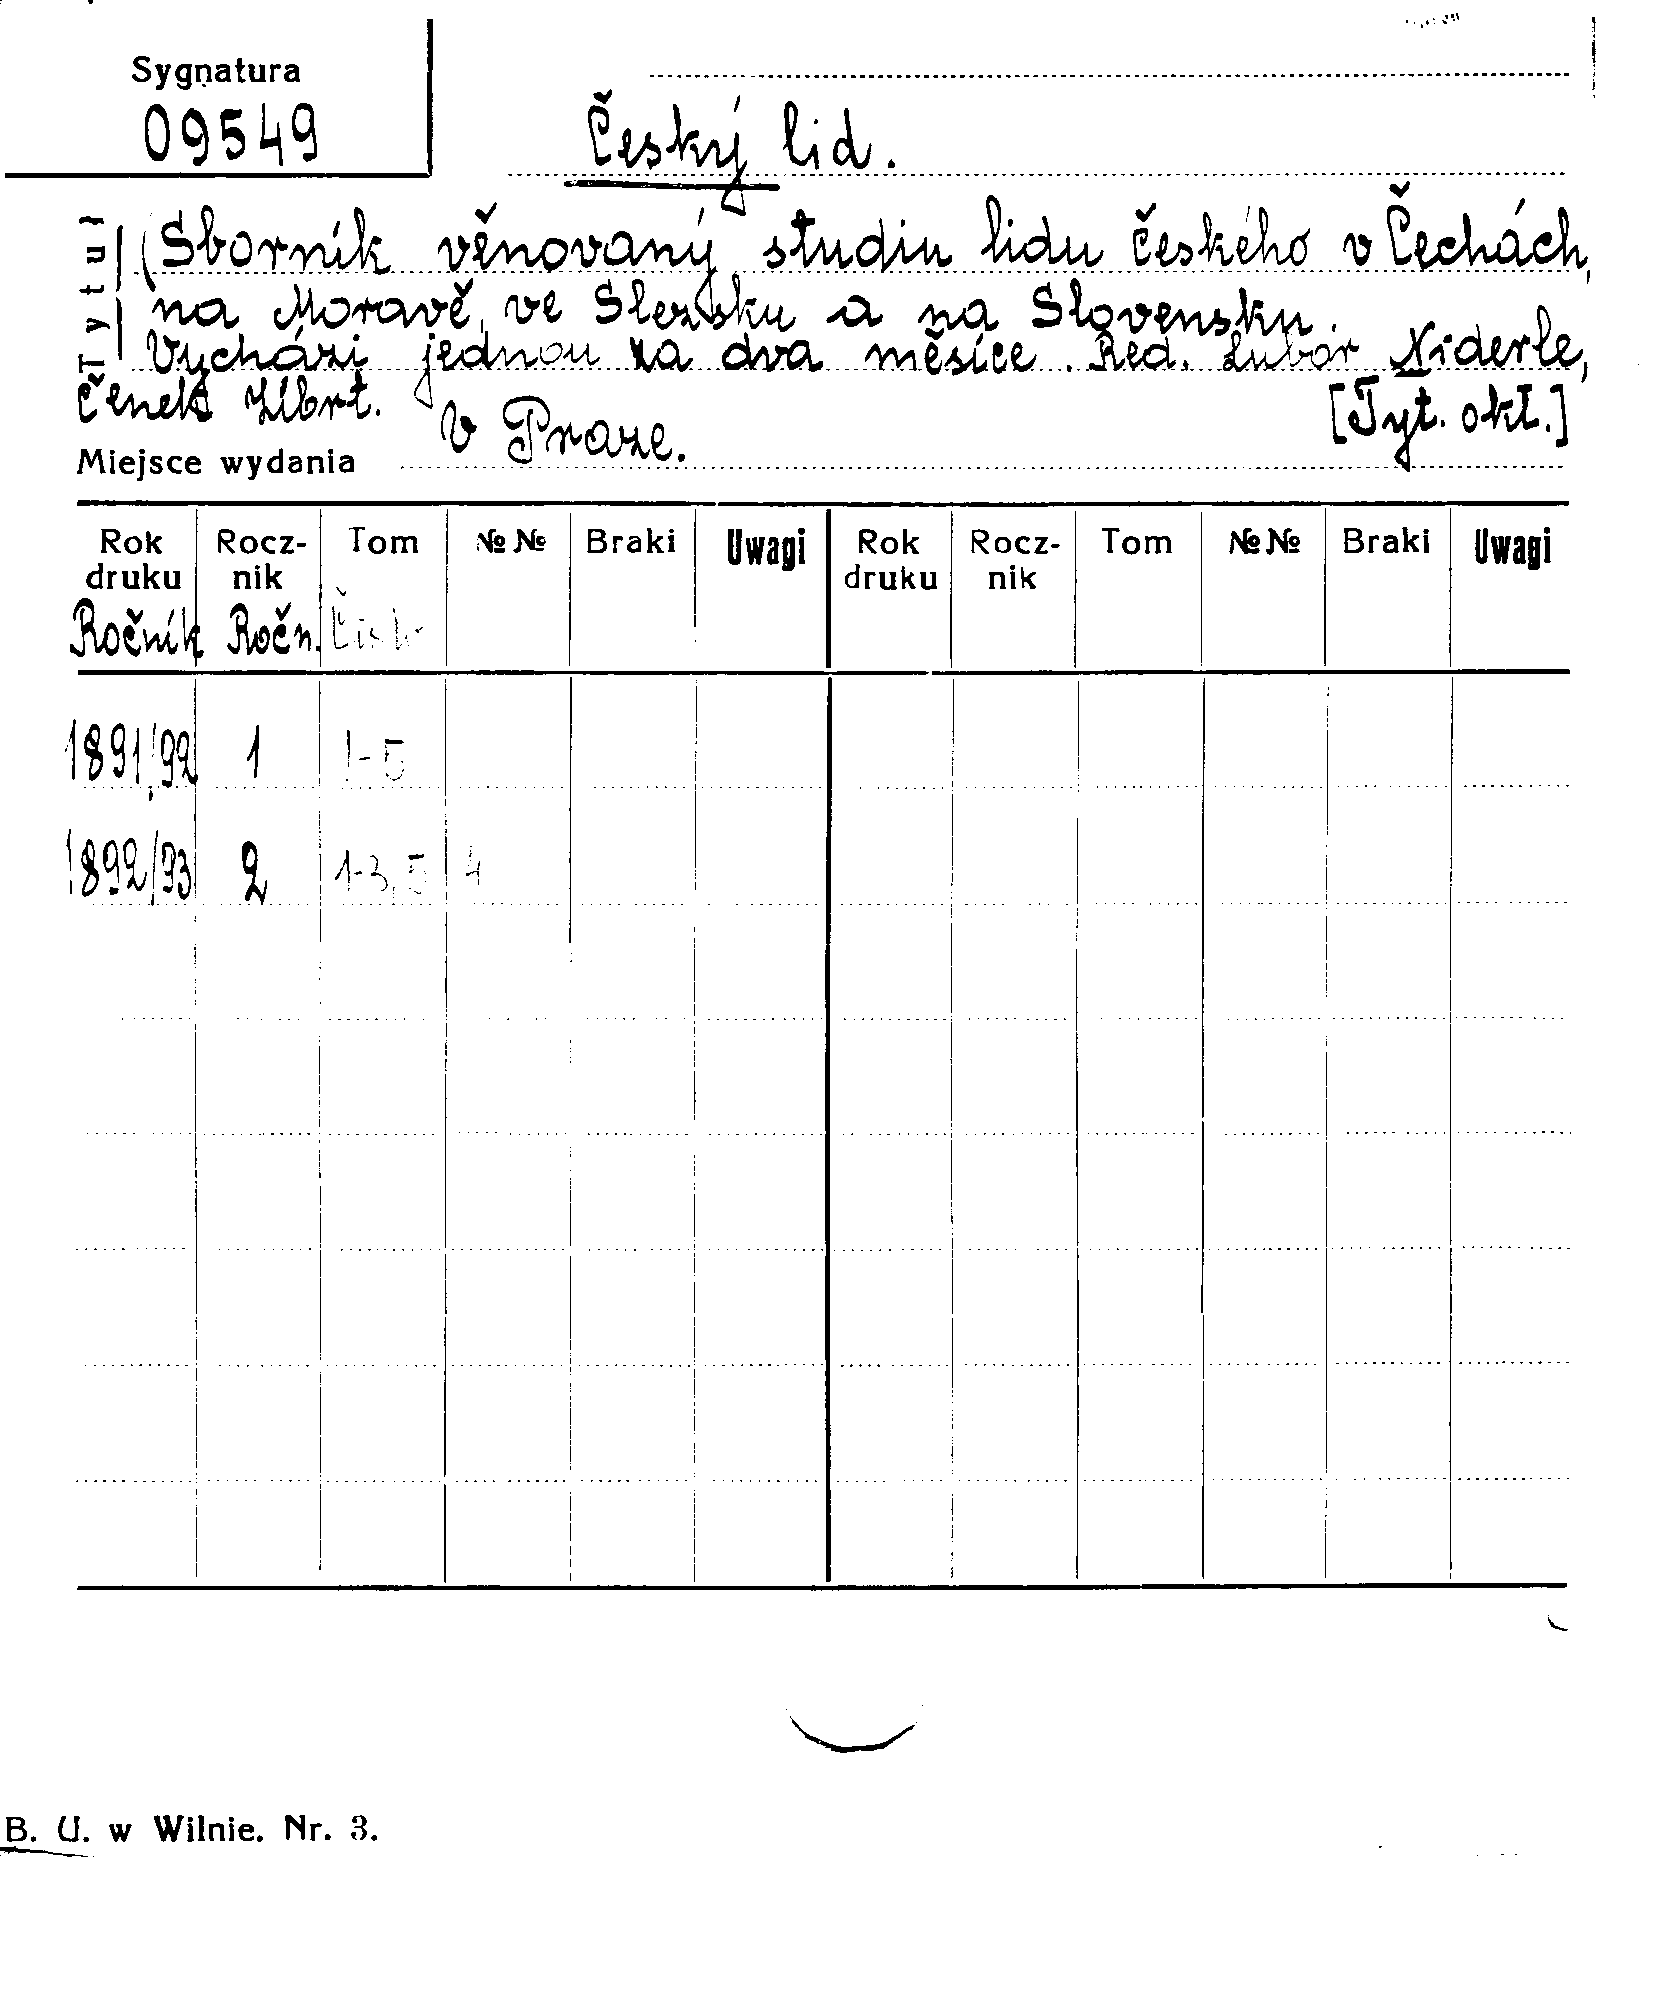 Sygnatura
09549
Český lid.
Tytuł
(Sborník věnovaný studiu lidu českého v Čechách,
na Moravě, ve Slezsku a na Slovensku.
Vychází jednou za dva měsíce. Red. Lubor Niderle,
Čeněk Zíbrt. [Tyt. okł.]
Miejsce wydania V Praze.
Rok druku Rocz-nik Tom №№ Braki Uwagi Rok druku Rocz-nik Tom №№ Braki Uwagi
Ročník Ročn. Číslo
1891/92 1 1-5
1892/93 2 1-3,5 4
B. U. w Wilnie. Nr. 3.